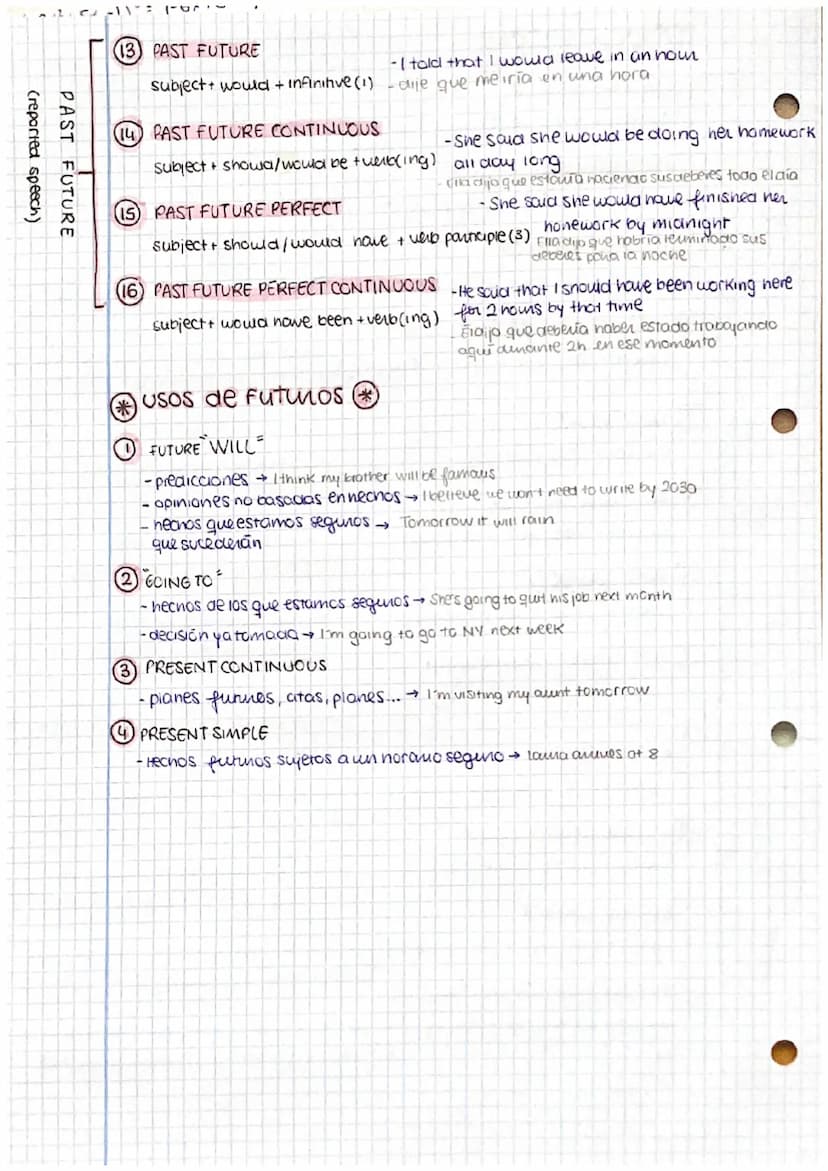 PAST FUTURE
(reported speech)
13 PAST FUTURE
- I told that I would leave in an hour
subject + would + infinitive (1)
- dije que me iría en una hora
14 PAST FUTURE CONTINUOUS
- She said she would be doing her homework
subject + should/would be + verb(ing)
all day long
Ella dijo que estaría haciendo sus deberes todo el día
15 PAST FUTURE PERFECT
- She said she would have finished her
homework by midnight
subject + should/would have + verb participle (3)
Ella dijo que habría terminado sus
deberes para la noche
16 PAST FUTURE PERFECT CONTINUOUS
- He said that I should have been working here
for 2 hours by that time
subject + would have been + verb(ing)
- Él dijo que debería haber estado trabajando
aquí durante 2h en ese momento
* USOS de FUTUROS *
1 FUTURE "WILL"
- predicciones → I think my brother will be famous
- opiniones no basadas en hechos → I believe we won't need to write by 2030
- hechos que estamos seguros → Tomorrow it will rain
que sucederán
2 "GOING TO"
- hechos de los que estamos seguros → She's going to quit his job next month
- decisión ya tomada → I'm going to go to NY next week
3 PRESENT CONTINUOUS
- planes futuros, citas, planes... → I'm visiting my aunt tomorrow
4 PRESENT SIMPLE
- Hechos futuros sujetos a un horario seguro → Laura arrives at 8